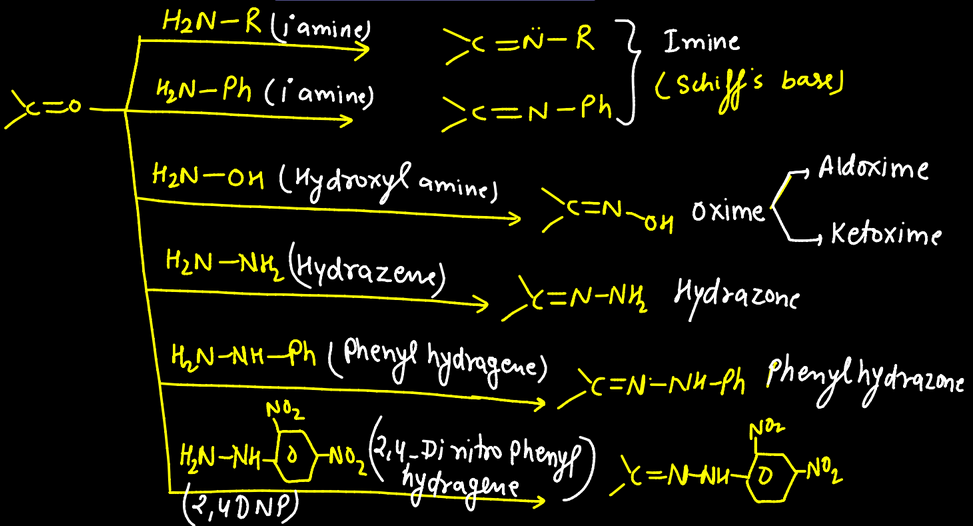 H₂N-R (i amine)
C=N̈-R
Imine
(Schiff's base)
H₂N-Ph (i amine)
C=N-Ph
C=O
H₂N-OH (Hydroxyl amine)
C=N-OH oxime
Aldoxime
Ketoxime
H₂N-NH₂ (Hydrazene)
C=N-NH₂ Hydrazone
H₂N-NH-Ph (Phenyl hydragene)
C=N-NH-Ph Phenylhydrazone
NO₂
H₂N-NH- -NO₂ (2,4-Dinitro phenyl
hydragene)
(2,4 DNP)
NO₂
C=N-NH- -NO₂